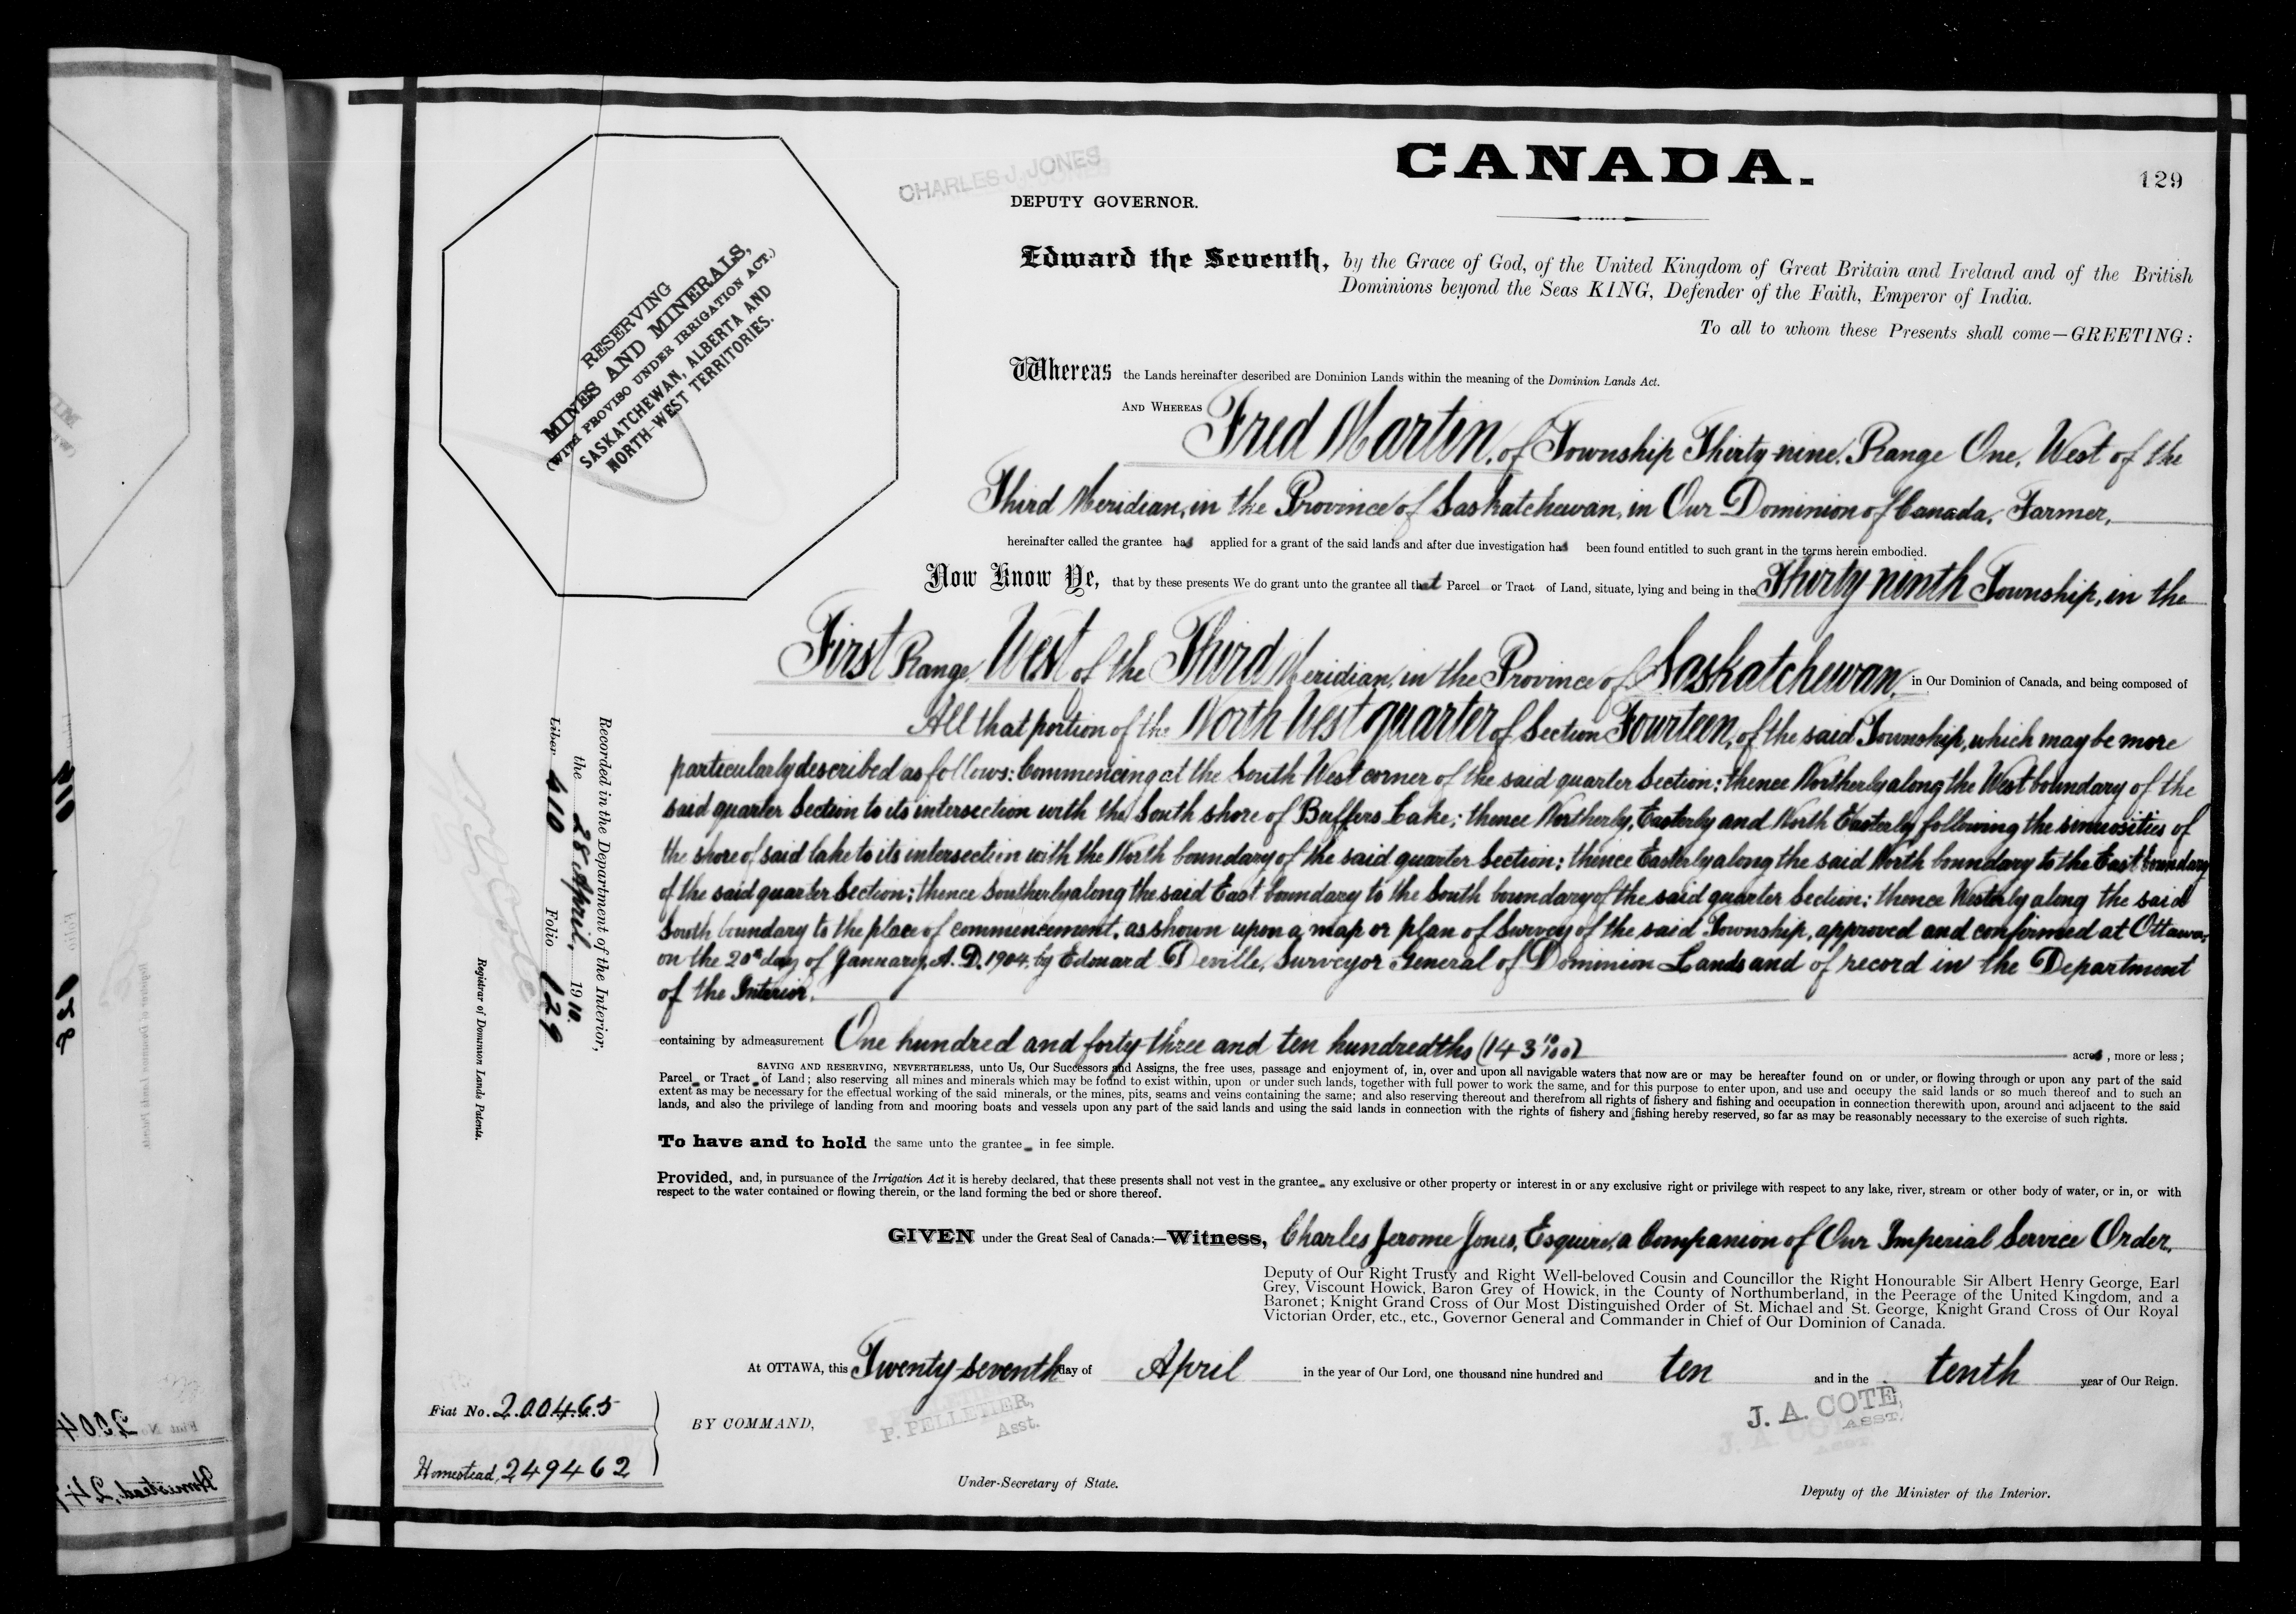 CANADA.
129
CHARLES J. JONES
DEPUTY GOVERNOR.
Edward the Seventh, by the Grace of God, of the United Kingdom of Great Britain and Ireland and of the British
Dominions beyond the Seas KING, Defender of the Faith, Emperor of India.
To all to whom these Presents shall come—GREETING:
RESERVING
MINES AND MINERALS,
(WITH PROVISO UNDER IRRIGATION ACT.)
SASKATCHEWAN, ALBERTA AND
NORTH-WEST TERRITORIES.
Whereas the Lands hereinafter described are Dominion Lands within the meaning of the Dominion Lands Act.
AND WHEREAS Fred Martin, of Township Thirty-nine, Range One, West of the
Third Meridian, in the Province of Saskatchewan, in Our Dominion of Canada, Farmer,
hereinafter called the grantee has applied for a grant of the said lands and after due investigation has been found entitled to such grant in the terms herein embodied.
Now Know Ye, that by these presents We do grant unto the grantee all that Parcel or Tract of Land, situate, lying and being in the Thirty-ninth Township, in the
First Range West of the Third Meridian, in the Province of Saskatchewan, in Our Dominion of Canada, and being composed of
All that portion of the North West quarter of Section Fourteen, of the said Township, which may be more
particularly described as follows: Commencing at the South West corner of the said quarter Section; thence Northerly along the West boundary of the
said quarter Section to its intersection with the South shore of Buffers Lake; thence Northerly, Easterly and North Easterly following the sinuosities of
the shore of said lake to its intersection with the North boundary of the said quarter Section; thence Easterly along the said North boundary to the East boundary
of the said quarter Section; thence Southerly along the said East boundary to the South boundary of the said quarter Section; thence Westerly along the said
South boundary to the place of commencement, as shown upon a map or plan of Survey of the said Township, approved and confirmed at Ottawa,
on the 20th day of January, A. D. 1904, by Edouard Deville, Surveyor General of Dominion Lands and of record in the Department
of the Interior.
containing by admeasurement One hundred and forty-three and ten hundredths (143 10/100) acres, more or less;
SAVING AND RESERVING, NEVERTHELESS, unto Us, Our Successors and Assigns, the free uses, passage and enjoyment of, in, over and upon all navigable waters that now are or may be hereafter found on or under, or flowing through or upon any part of the said
Parcel or Tract of Land; also reserving all mines and minerals which may be found to exist within, upon or under such lands, together with full power to work the same, and for this purpose to enter upon, and use and occupy the said lands or so much thereof and to such an
extent as may be necessary for the effectual working of the said minerals, or the mines, pits, seams and veins containing the same; and also reserving thereout and therefrom all rights of fishery and fishing and occupation in connection therewith upon, around and adjacent to the said
lands, and also the privilege of landing from and mooring boats and vessels upon any part of the said lands and using the said lands in connection with the rights of fishery and fishing hereby reserved, so far as may be reasonably necessary to the exercise of such rights.
To have and to hold the same unto the grantee in fee simple.
Provided, and, in pursuance of the Irrigation Act it is hereby declared, that these presents shall not vest in the grantee any exclusive or other property or interest in or any exclusive right or privilege with respect to any lake, river, stream or other body of water, or in, or with
respect to the water contained or flowing therein, or the land forming the bed or shore thereof.
GIVEN under the Great Seal of Canada:—Witness, Charles Jerome Jones, Esquire, a Companion of Our Imperial Service Order,
Deputy of Our Right Trusty and Right Well-beloved Cousin and Councillor the Right Honourable Sir Albert Henry George, Earl
Grey, Viscount Howick, Baron Grey of Howick, in the County of Northumberland, in the Peerage of the United Kingdom, and a
Baronet; Knight Grand Cross of Our Most Distinguished Order of St. Michael and St. George, Knight Grand Cross of Our Royal
Victorian Order, etc., etc., Governor General and Commander in Chief of Our Dominion of Canada.
At OTTAWA, this Twenty-seventh day of April in the year of Our Lord, one thousand nine hundred and ten and in the tenth year of Our Reign.
BY COMMAND,
P. PELLETIER,
Asst.
Under-Secretary of State.
J. A. COTE,
ASST.
Deputy of the Minister of the Interior.
Recorded in the Department of the Interior,
the 28 April, 1910.
Liber 410 Folio 129
Registrar of Dominion Lands Patents.
Fiat No. 200465
Homestead, 249462